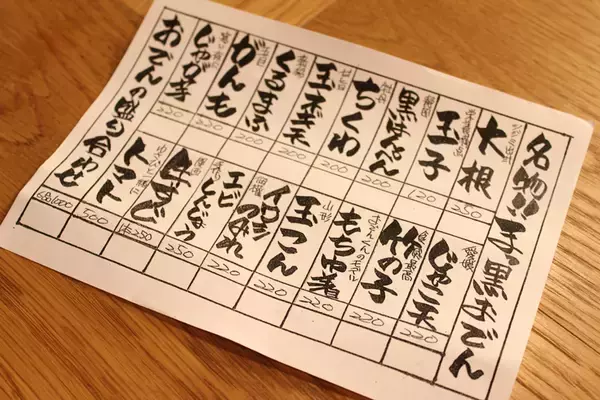 名物!! 真っ黒おでん
大根
250
玉子
120
静岡
黒はんぺん
200
ちくわ
200
玉ネギ天
200
くるまふ
200
がんも
220
じゃが芋
220
おでんの盛り合わせ
680/1000
愛媛
じゃこ天
220
竹の子
220
もち巾着
220
山形
玉こん
220
イワシつみれ
220
エビしんじょう
220
牛すじ
250
トマト
500